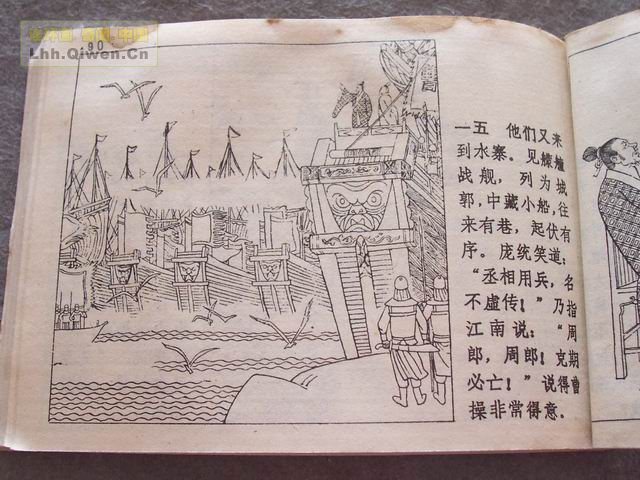 90
Lhh.Qiwen.Cn
曹
一五 他们又来
到水寨。见艨艟
战舰，列为城
郭，中藏小船，往
来有巷，起伏有
序。庞统笑道：
“丞相用兵，名
不虚传！”乃指
江南说：“周
郎，周郎！克期
必亡！”说得曹
操非常得意。